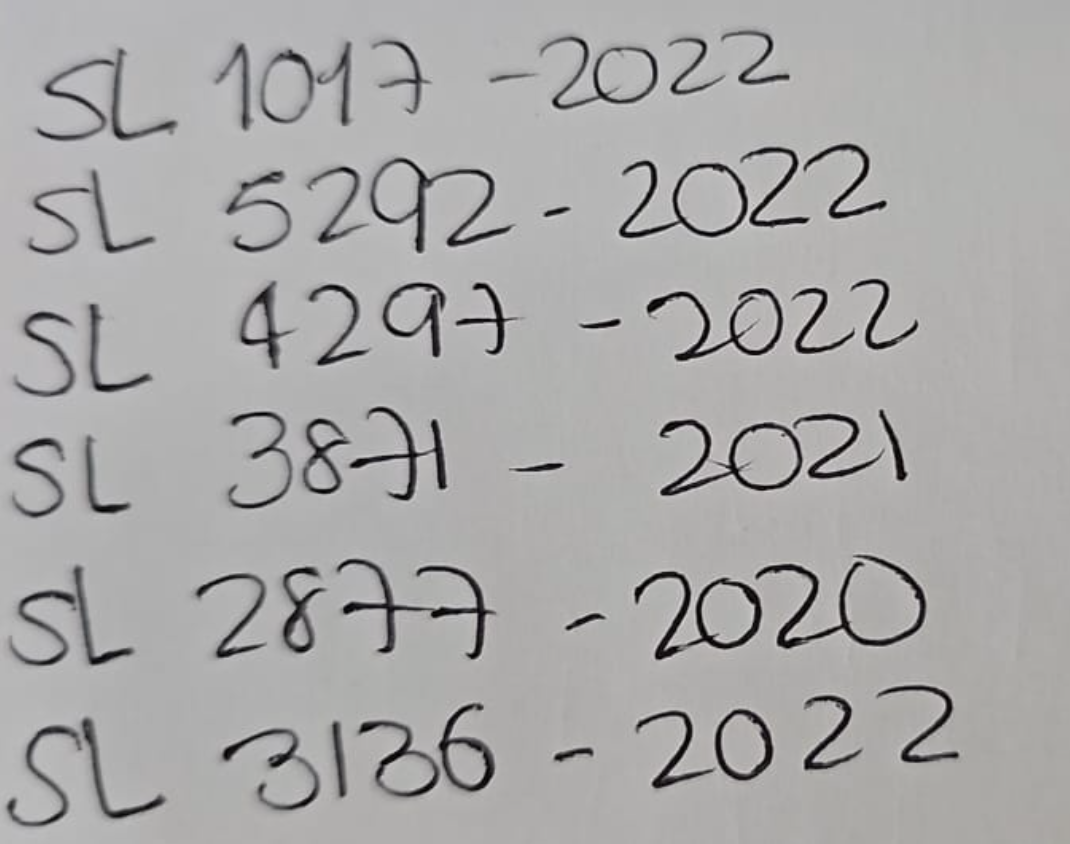 SL 1017 - 2022
SL 5292 - 2022
SL 4297 - 2022
SL 3871 - 2021
SL 2877 - 2020
SL 3136 - 2022